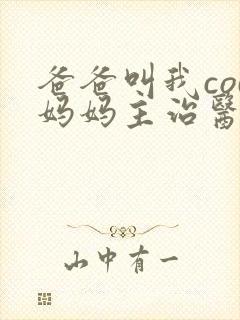 爸爸叫我co
妈妈主治醫
山中有一